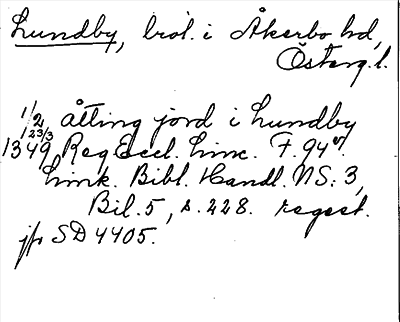 Lundby, brol. i Åkerbo hd,
Österg. l.
1/2 åtting jord i Lundby
1349 23/3 Reg Eccl. Linc. F. 94v.
Link. Bibl. Handl. NS: 3,
Bil. 5, s. 228. regest.
jfr SD 4405.